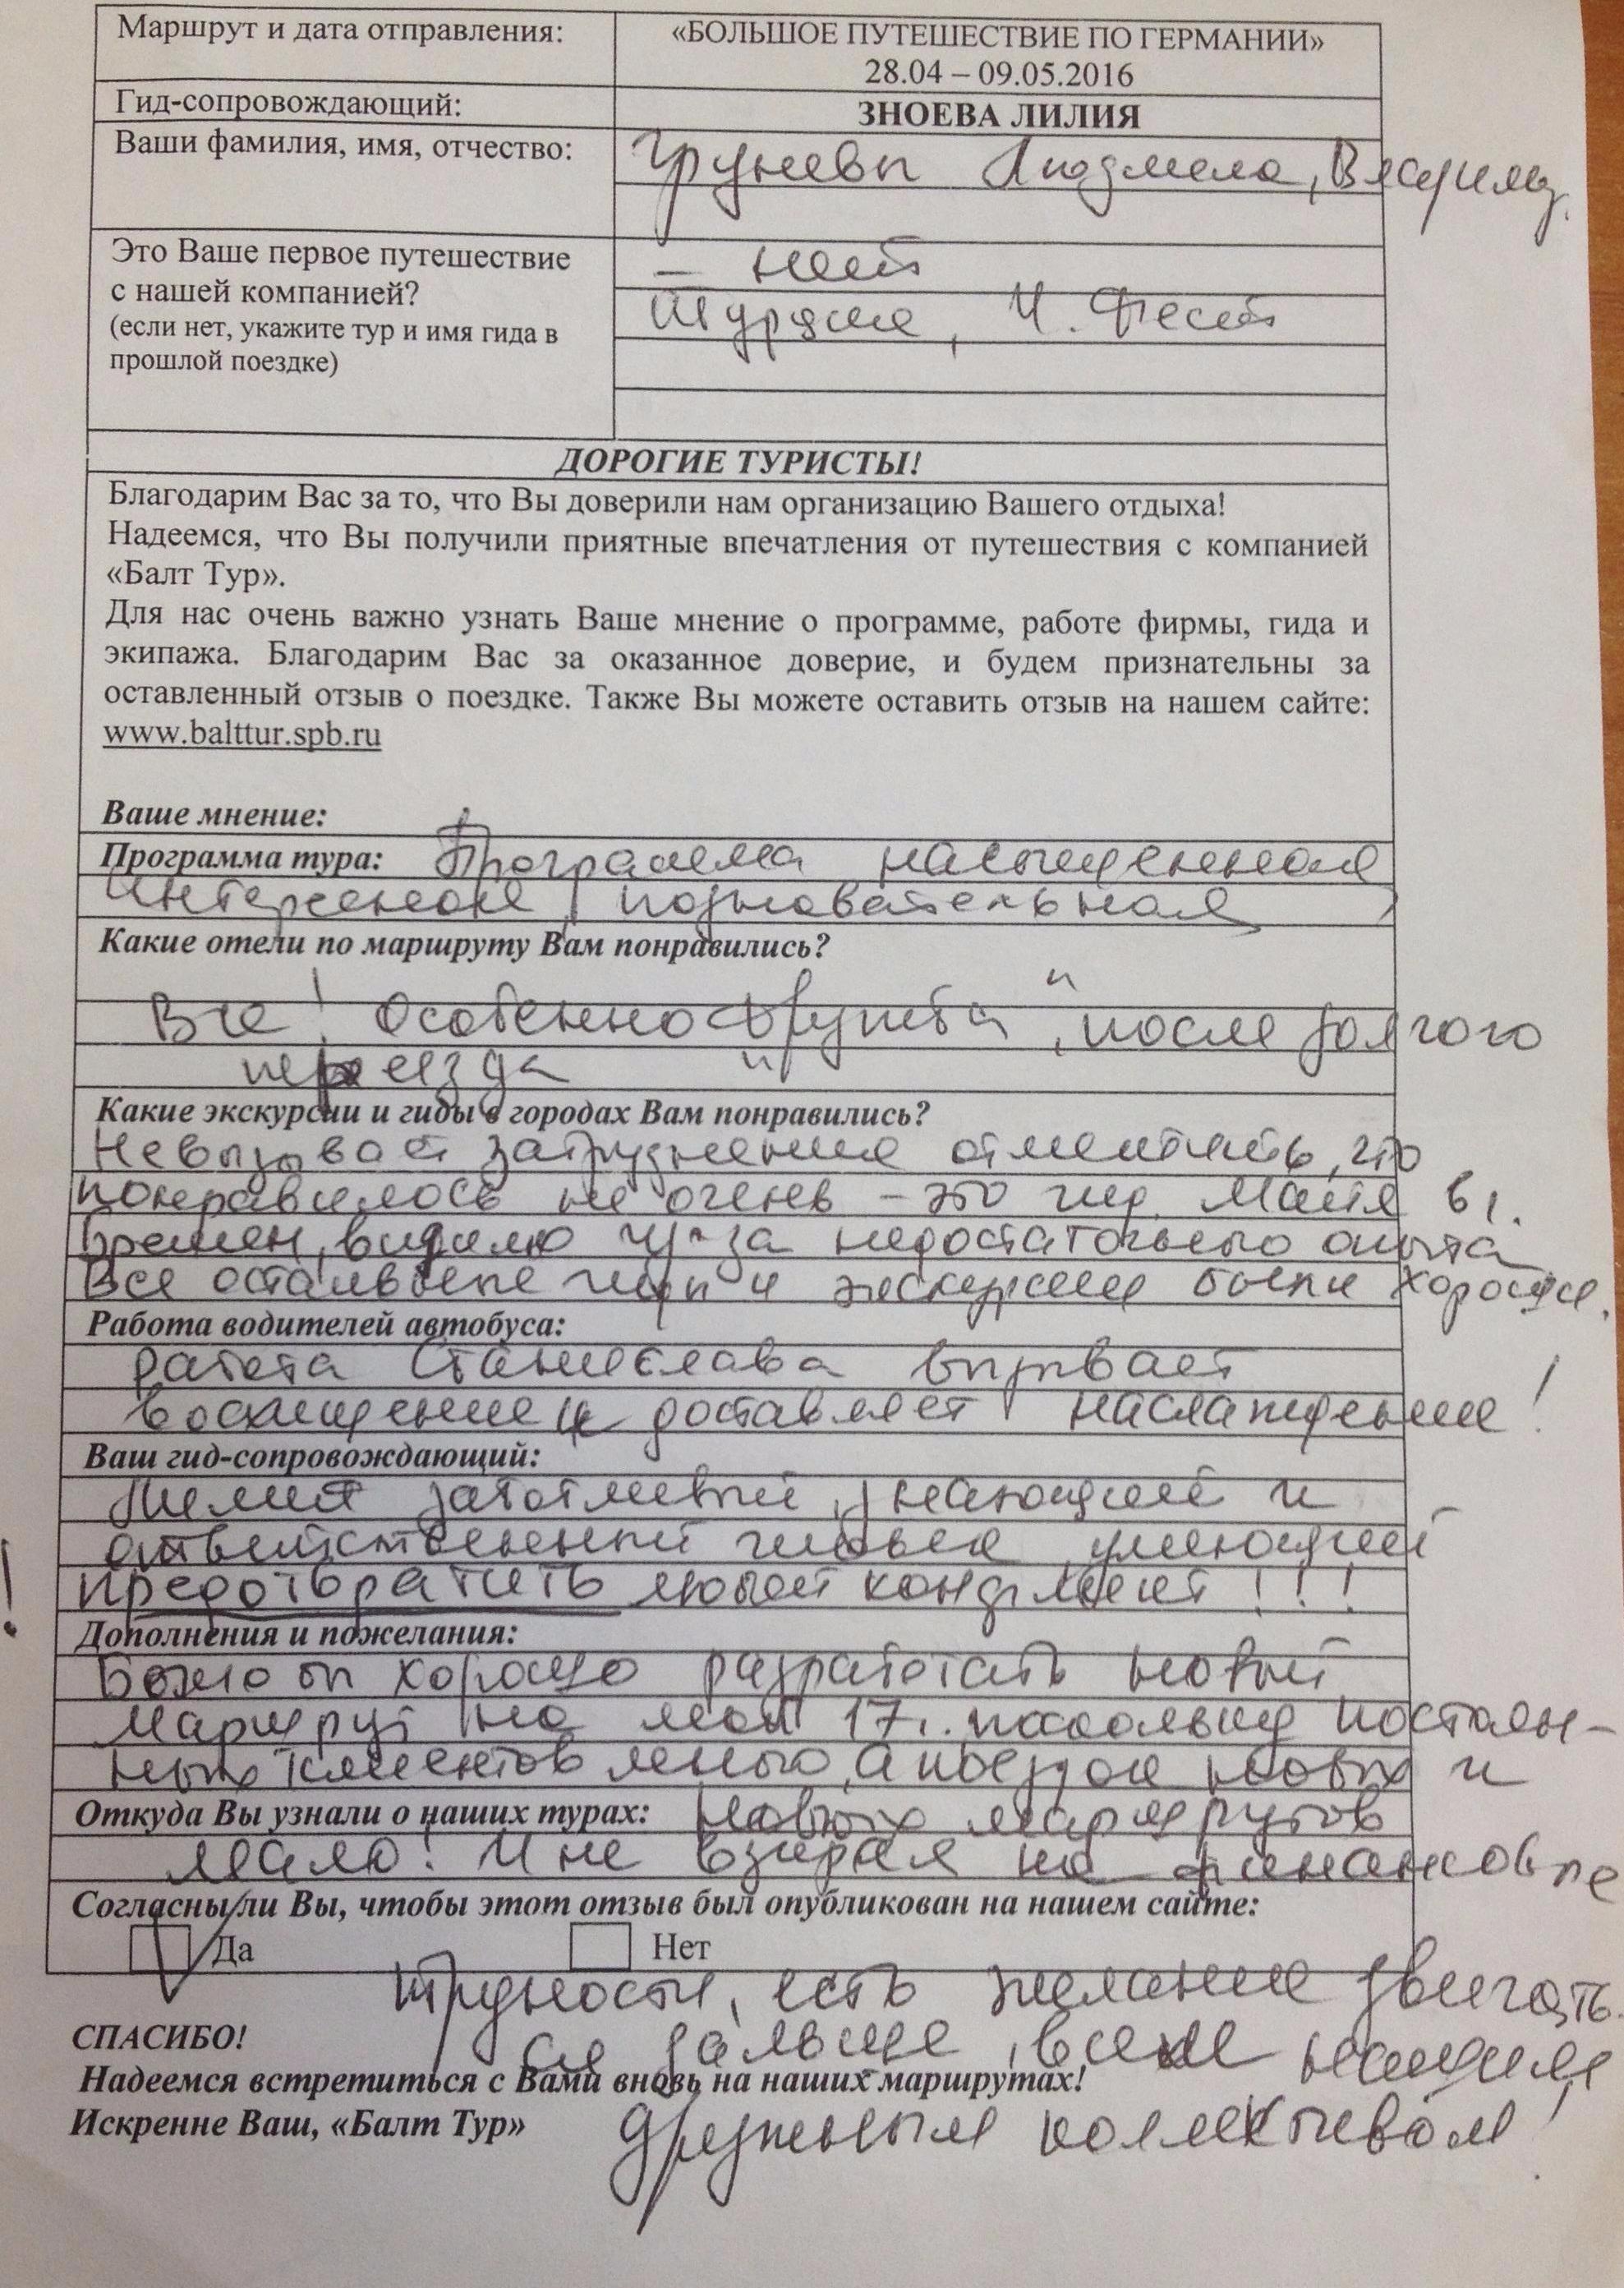 Маршрут и дата отправления:
«БОЛЬШОЕ ПУТЕШЕСТВИЕ ПО ГЕРМАНИИ»
28.04 – 09.05.2016
Гид-сопровождающий:
ЗНОЕВА ЛИЛИЯ
Ваши фамилия, имя, отчество:
Груневы Людмила,
Это Ваше первое путешествие
с нашей компанией?
(если нет, укажите тур и имя гида в
прошлой поездке)
– нет
И. Фест
ДОРОГИЕ ТУРИСТЫ!
Благодарим Вас за то, что Вы доверили нам организацию Вашего отдыха!
Надеемся, что Вы получили приятные впечатления от путешествия с компанией
«Балт Тур».
Для нас очень важно узнать Ваше мнение о программе, работе фирмы, гида и
экипажа. Благодарим Вас за оказанное доверие, и будем признательны за
оставленный отзыв о поездке. Также Вы можете оставить отзыв на нашем сайте:
www.balttur.spb.ru
Ваше мнение:
Программа тура: Программа насыщенная
интересная, познавательная
Какие отели по маршруту Вам понравились?
Все! Особенно „Дружба", после долгого
переезда
Какие экскурсии и гиды в городах Вам понравились?
Невызовает затруднения отметить, что
понравилось не очень – это гид Майя в г.
Бремен, видимо из-за недостаточного опыта
Все остальные гиды и экскурсии были хороши.
Работа водителей автобуса:
работа Станислава вызывает
восхищение и доставляет наслаждение!
Ваш гид-сопровождающий:
Лилия заботливый, знающий и
ответственный человек, умеющий
! предотвратить любой конфликт!!!
Дополнения и пожелания:
Было бы хорошо разработать новый
маршрут на май 17г. поскольку постоян-
ных клиентов много, а поездок новых и
Откуда Вы узнали о наших турах: новых маршрутов
мало! И не взирая на финансовые
Согласны ли Вы, чтобы этот отзыв был опубликован на нашем сайте:
Да Нет
трудности, есть желание двигать
ся дальше, всем нашим
СПАСИБО!
Надеемся встретиться с Вами вновь на наших маршрутах!
Искренне Ваш, «Балт Тур»
дружным коллективом!